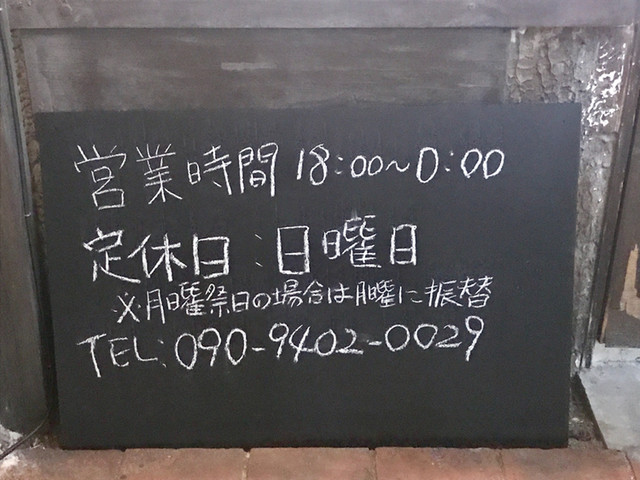 営業時間 18:00〜0:00
定休日:日曜日
※月曜祭日の場合は月曜に振替
TEL:090-9402-0029